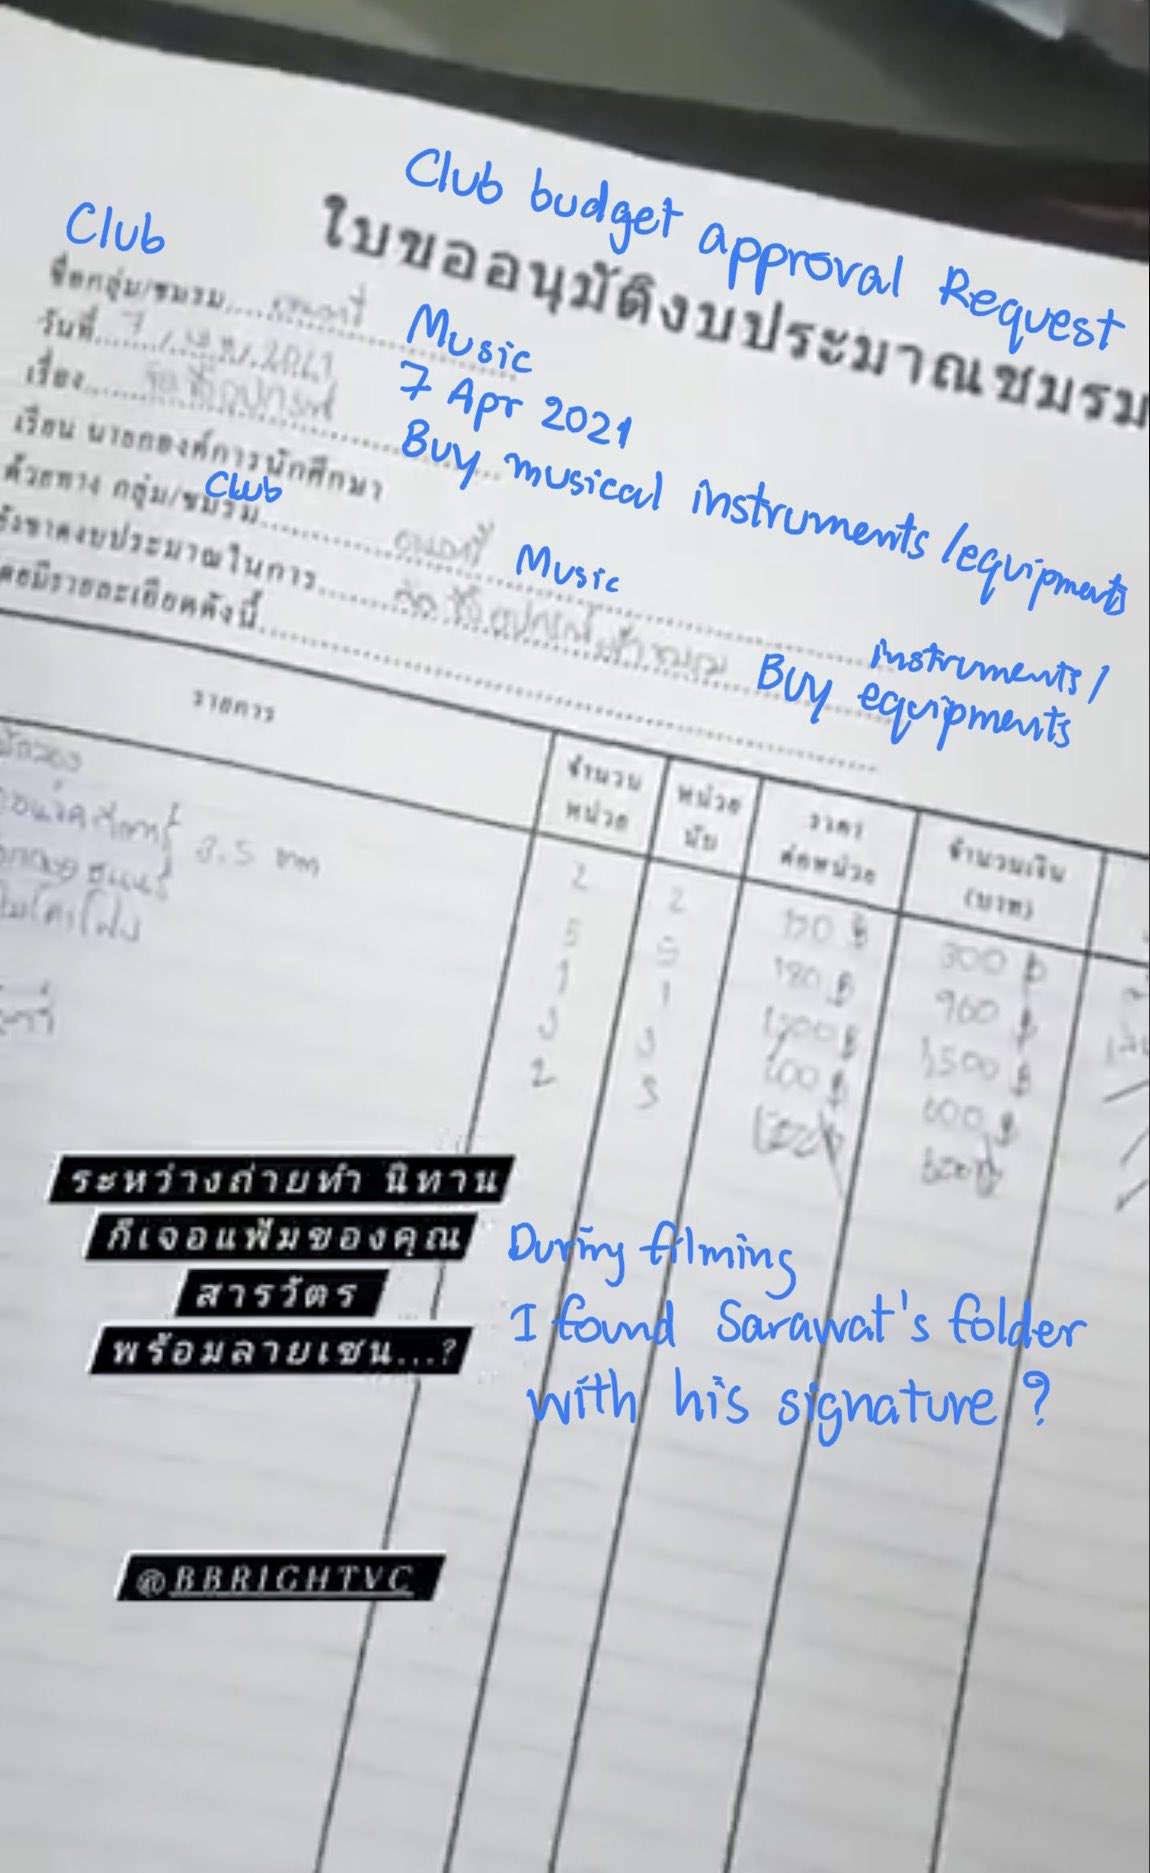 Club budget approval Request
ใบขออนุมัติงบประมาณชมรม
Club
ชื่อกลุ่ม/ชมรม.... ดนตรี
Music
วันที่ 7
7 Apr 2021
เรื่อง.... จัดซื้ออุปกรณ์
Buy musical instruments /equipments
เรียน นายกองค์การนักศึกษา
Club
ด้วยทาง กลุ่ม/ชมรม.... ดนตรี
Music
งบประมาณในการ.... จัดซื้ออุปกรณ์
Buy instruments / equipments
รายละเอียดดังนี้
รายการ
จำนวน หน่วย
หน่วย นับ
ราคา ต่อหน่วย
จำนวนเงิน (บาท)
3.5 mm
2 2 ฿ 300 ฿
5 5 ฿ 900 ฿
1 1 ฿ 1500 ฿
ไมโครโฟน
3 3 ฿ 600 ฿
2 3
ระหว่างถ่ายทำ นิทาน
ก็เจอแฟ้มของคุณ
สารวัตร
พร้อมลายเซน...?
During filming
I found Sarawat's folder
with his signature ?
@BBRIGHTVC